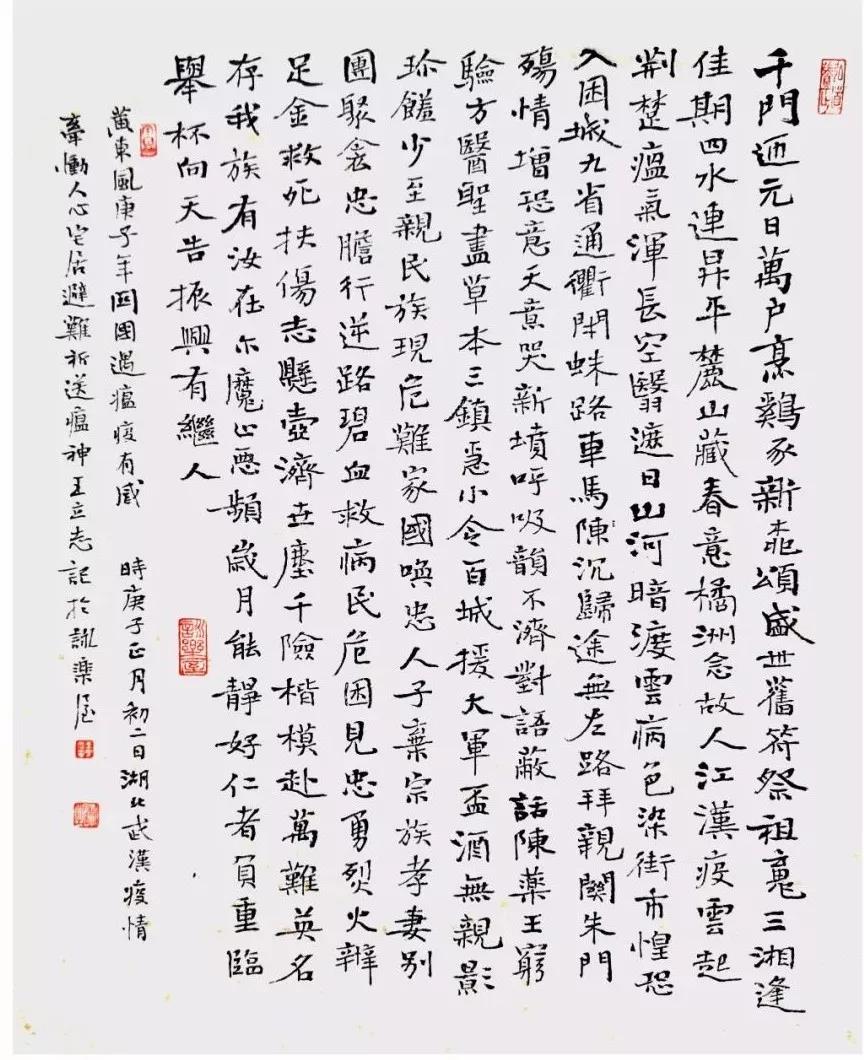 千門迎元日萬户烹鷄豕新桃頌盛世舊符祭祖魂三湘逢
佳期四水連昇平麓山藏春意橘洲念故人江漢疫雲起
荆楚瘟氣渾長空翳遮日山河暗渡雲病色染街市惶恐
入困城九省通衢閉蛛路車馬陳沉歸途無左路拜親關朱門
殤情增恐意天意哭新墳呼吸韻不濟對語蔽話陳藥王窮
驗方醫聖盡草本三鎮急小令百城援大軍盃酒無親影
珍饈少至親民族現危難家國喚忠人子棄宗族孝妻别
團聚衾忠膽行逆路碧血救病民危困見忠勇烈火辨
足金救死扶傷志懸壺濟世塵千險楷模赴萬難英名
存我族有汝在尔魔心悪頻歲月能靜好仁者負重臨
舉杯向天告振興有繼人
黄東風庚子年回國遇瘟疫有感 時庚子正月初二日湖北武漢疫情
牽慟人心宅居避難祈送瘟神王立志記於詠樂屋